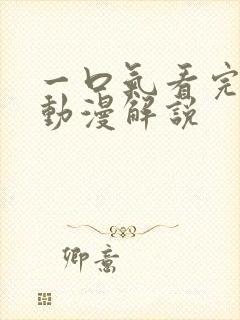 一口氣看完
動漫解說
卿意